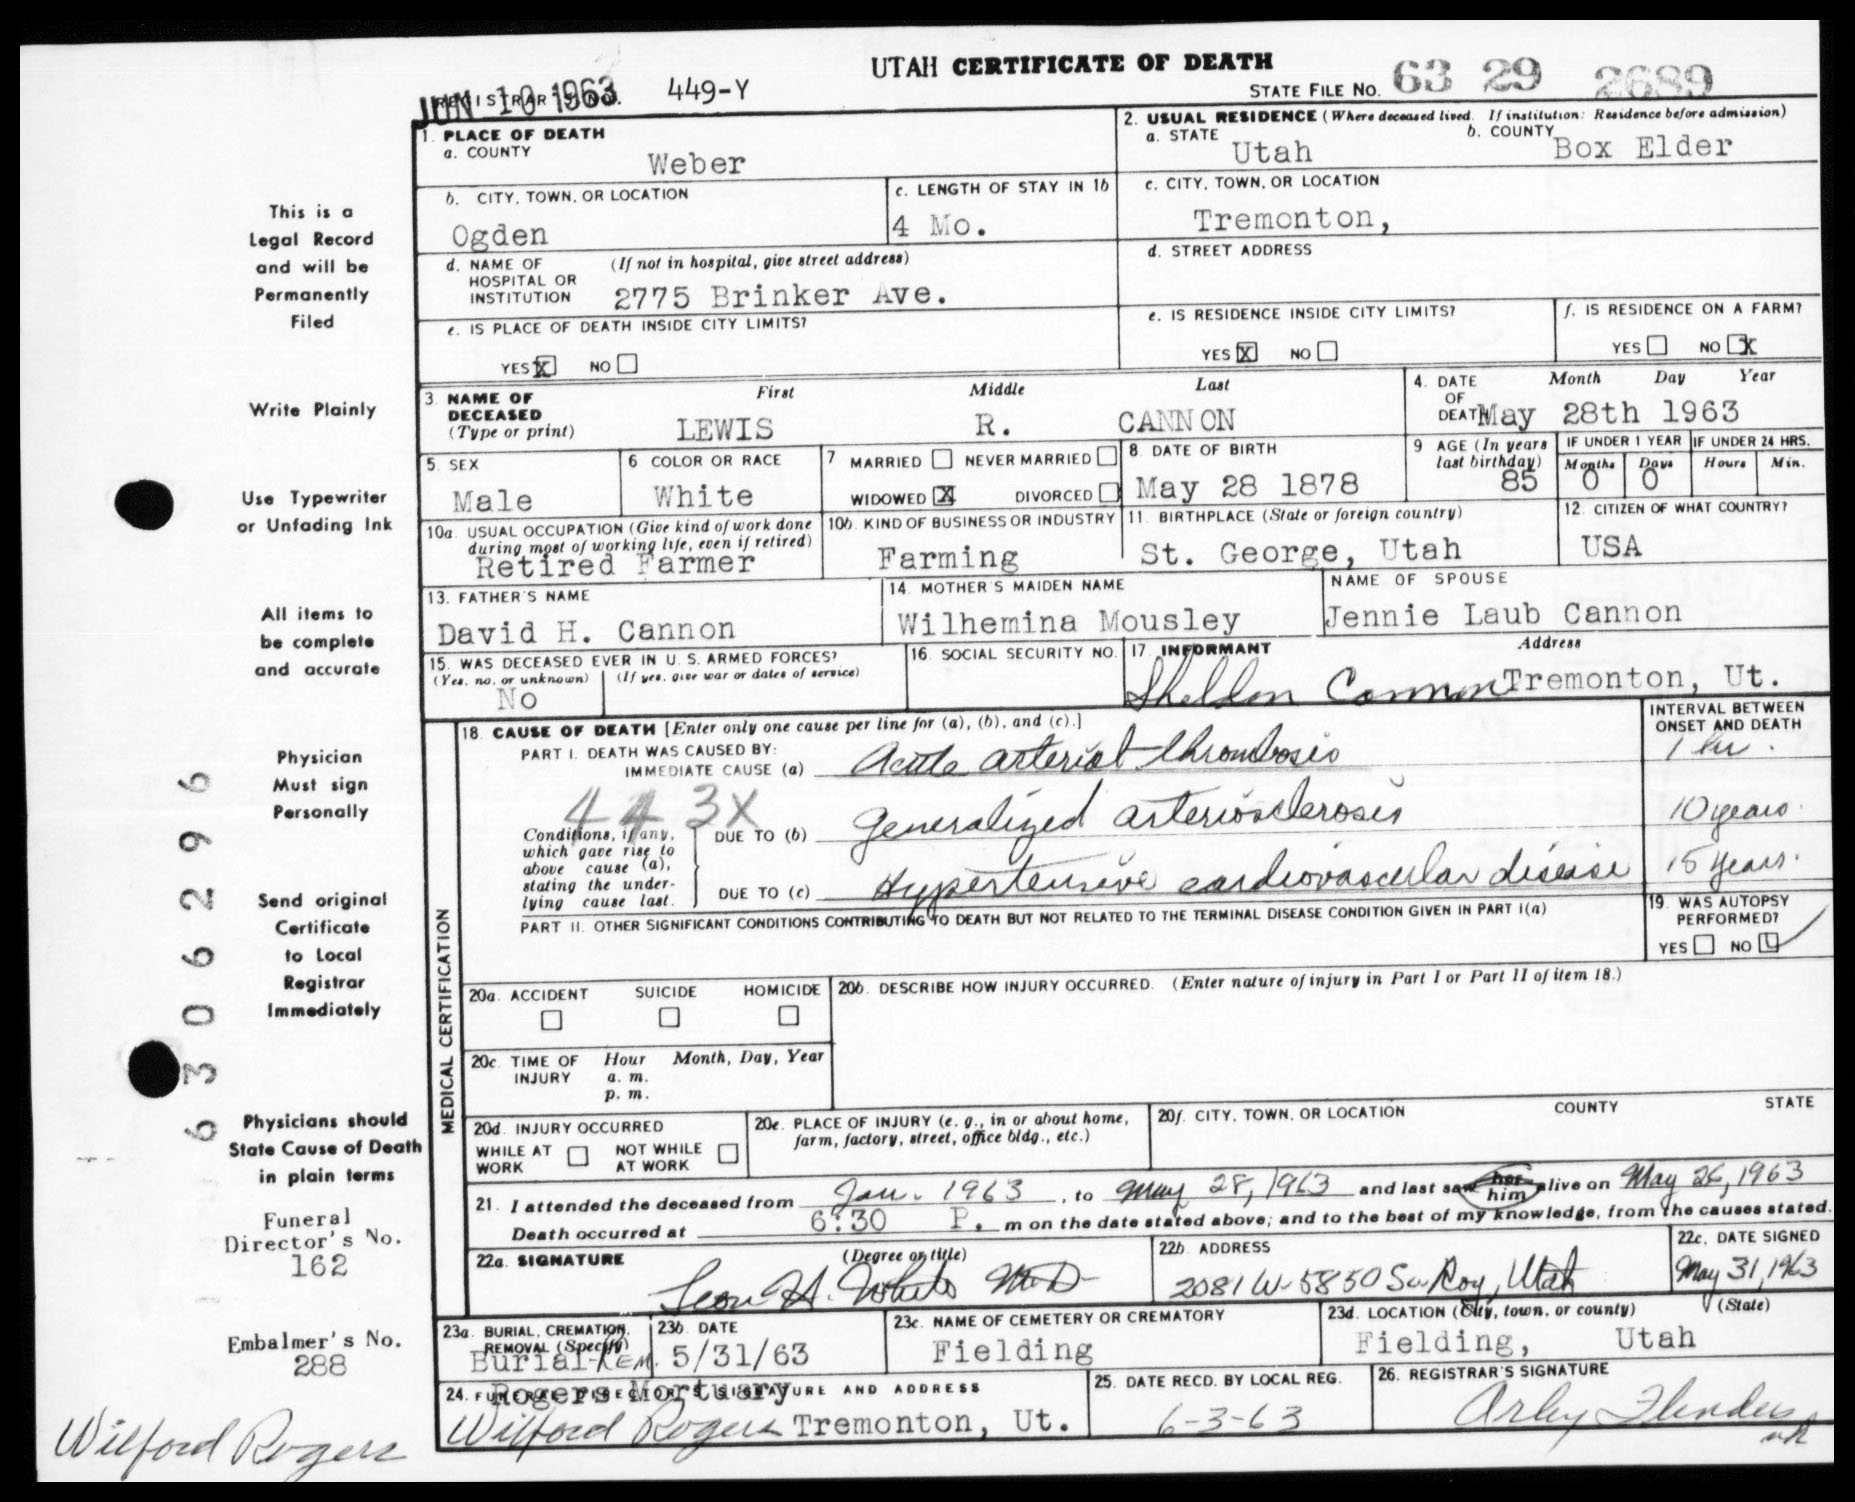 UTAH CERTIFICATE OF DEATH
JUN 10 1963 449-Y
REGISTRAR'S NO.
STATE FILE NO. 63 29 2689
1. PLACE OF DEATH
a. COUNTY
Weber
2. USUAL RESIDENCE (Where deceased lived. If institution: Residence before admission)
a. STATE
Utah
b. COUNTY
Box Elder
b. CITY, TOWN, OR LOCATION
Ogden
c. LENGTH OF STAY IN 1b
4 Mo.
c. CITY, TOWN, OR LOCATION
Tremonton,
d. NAME OF HOSPITAL OR INSTITUTION
(If not in hospital, give street address)
2775 Brinker Ave.
d. STREET ADDRESS
e. IS PLACE OF DEATH INSIDE CITY LIMITS?
YES X NO
e. IS RESIDENCE INSIDE CITY LIMITS?
YES X NO
f. IS RESIDENCE ON A FARM?
YES NO X
3. NAME OF DECEASED
(Type or print)
First Middle Last
LEWIS R. CANNON
4. DATE OF DEATH
Month Day Year
May 28th 1963
5. SEX
Male
6 COLOR OR RACE
White
7 MARRIED NEVER MARRIED
WIDOWED X DIVORCED
8 DATE OF BIRTH
May 28 1878
9 AGE (In years last birthday)
85
IF UNDER 1 YEAR
Months Days
0 0
IF UNDER 24 HRS.
Hours Min.
10a. USUAL OCCUPATION (Give kind of work done during most of working life, even if retired)
Retired Farmer
10b. KIND OF BUSINESS OR INDUSTRY
Farming
11. BIRTHPLACE (State or foreign country)
St. George, Utah
12. CITIZEN OF WHAT COUNTRY?
USA
13. FATHER'S NAME
David H. Cannon
14. MOTHER'S MAIDEN NAME
Wilhemina Mousley
NAME OF SPOUSE
Jennie Laub Cannon
15. WAS DECEASED EVER IN U. S. ARMED FORCES?
(Yes, no, or unknown) (If yes, give war or dates of service)
No
16. SOCIAL SECURITY NO.
17. INFORMANT Address
Sheldon Cannon Tremonton, Ut.
MEDICAL CERTIFICATION
18. CAUSE OF DEATH [Enter only one cause per line for (a), (b), and (c).]
INTERVAL BETWEEN ONSET AND DEATH
PART I. DEATH WAS CAUSED BY:
IMMEDIATE CAUSE (a) Acute arterial thrombosis 1 hr.
443X
Conditions, if any, which gave rise to above cause (a), stating the underlying cause last.
DUE TO (b) Generalized arteriosclerosis 10 years.
DUE TO (c) Hypertensive cardiovascular disease 15 years.
PART II. OTHER SIGNIFICANT CONDITIONS CONTRIBUTING TO DEATH BUT NOT RELATED TO THE TERMINAL DISEASE CONDITION GIVEN IN PART I(a)
19. WAS AUTOPSY PERFORMED?
YES NO
20a. ACCIDENT SUICIDE HOMICIDE
20b. DESCRIBE HOW INJURY OCCURRED. (Enter nature of injury in Part I or Part II of item 18.)
20c. TIME OF INJURY
Hour Month, Day, Year
a. m.
p. m.
20d. INJURY OCCURRED
WHILE AT WORK NOT WHILE AT WORK
20e. PLACE OF INJURY (e. g., in or about home, farm, factory, street, office bldg., etc.)
20f. CITY, TOWN, OR LOCATION COUNTY STATE
21. I attended the deceased from Jan. 1963, to May 28, 1963 and last saw her him alive on May 26, 1963
Death occurred at 6:30 P. m on the date stated above; and to the best of my knowledge, from the causes stated.
22a. SIGNATURE (Degree or title)
Leon H. White M.D.
22b. ADDRESS
2081 W-5850 So. Roy, Utah
22c. DATE SIGNED
May 31, 1963
23a. BURIAL, CREMATION, REMOVAL (Specify)
Burial-Rem.
23b. DATE
5/31/63
23c. NAME OF CEMETERY OR CREMATORY
Fielding
23d. LOCATION (City, town, or county) (State)
Fielding, Utah
24. FUNERAL DIRECTOR'S SIGNATURE AND ADDRESS
Rogers Mortuary
Wilford Rogers Tremonton, Ut.
25. DATE RECD. BY LOCAL REG.
6-3-63
26. REGISTRAR'S SIGNATURE
This is a
Legal Record
and will be
Permanently
Filed
Write Plainly
Use Typewriter
or Unfading Ink
All items to
be complete
and accurate
Physician
Must sign
Personally
Send original
Certificate
to Local
Registrar
Immediately
Physicians should
State Cause of Death
in plain terms
6 3 0 6 2 9 6
Funeral
Director's No.
162
Embalmer's No.
288
Wilford Rogers